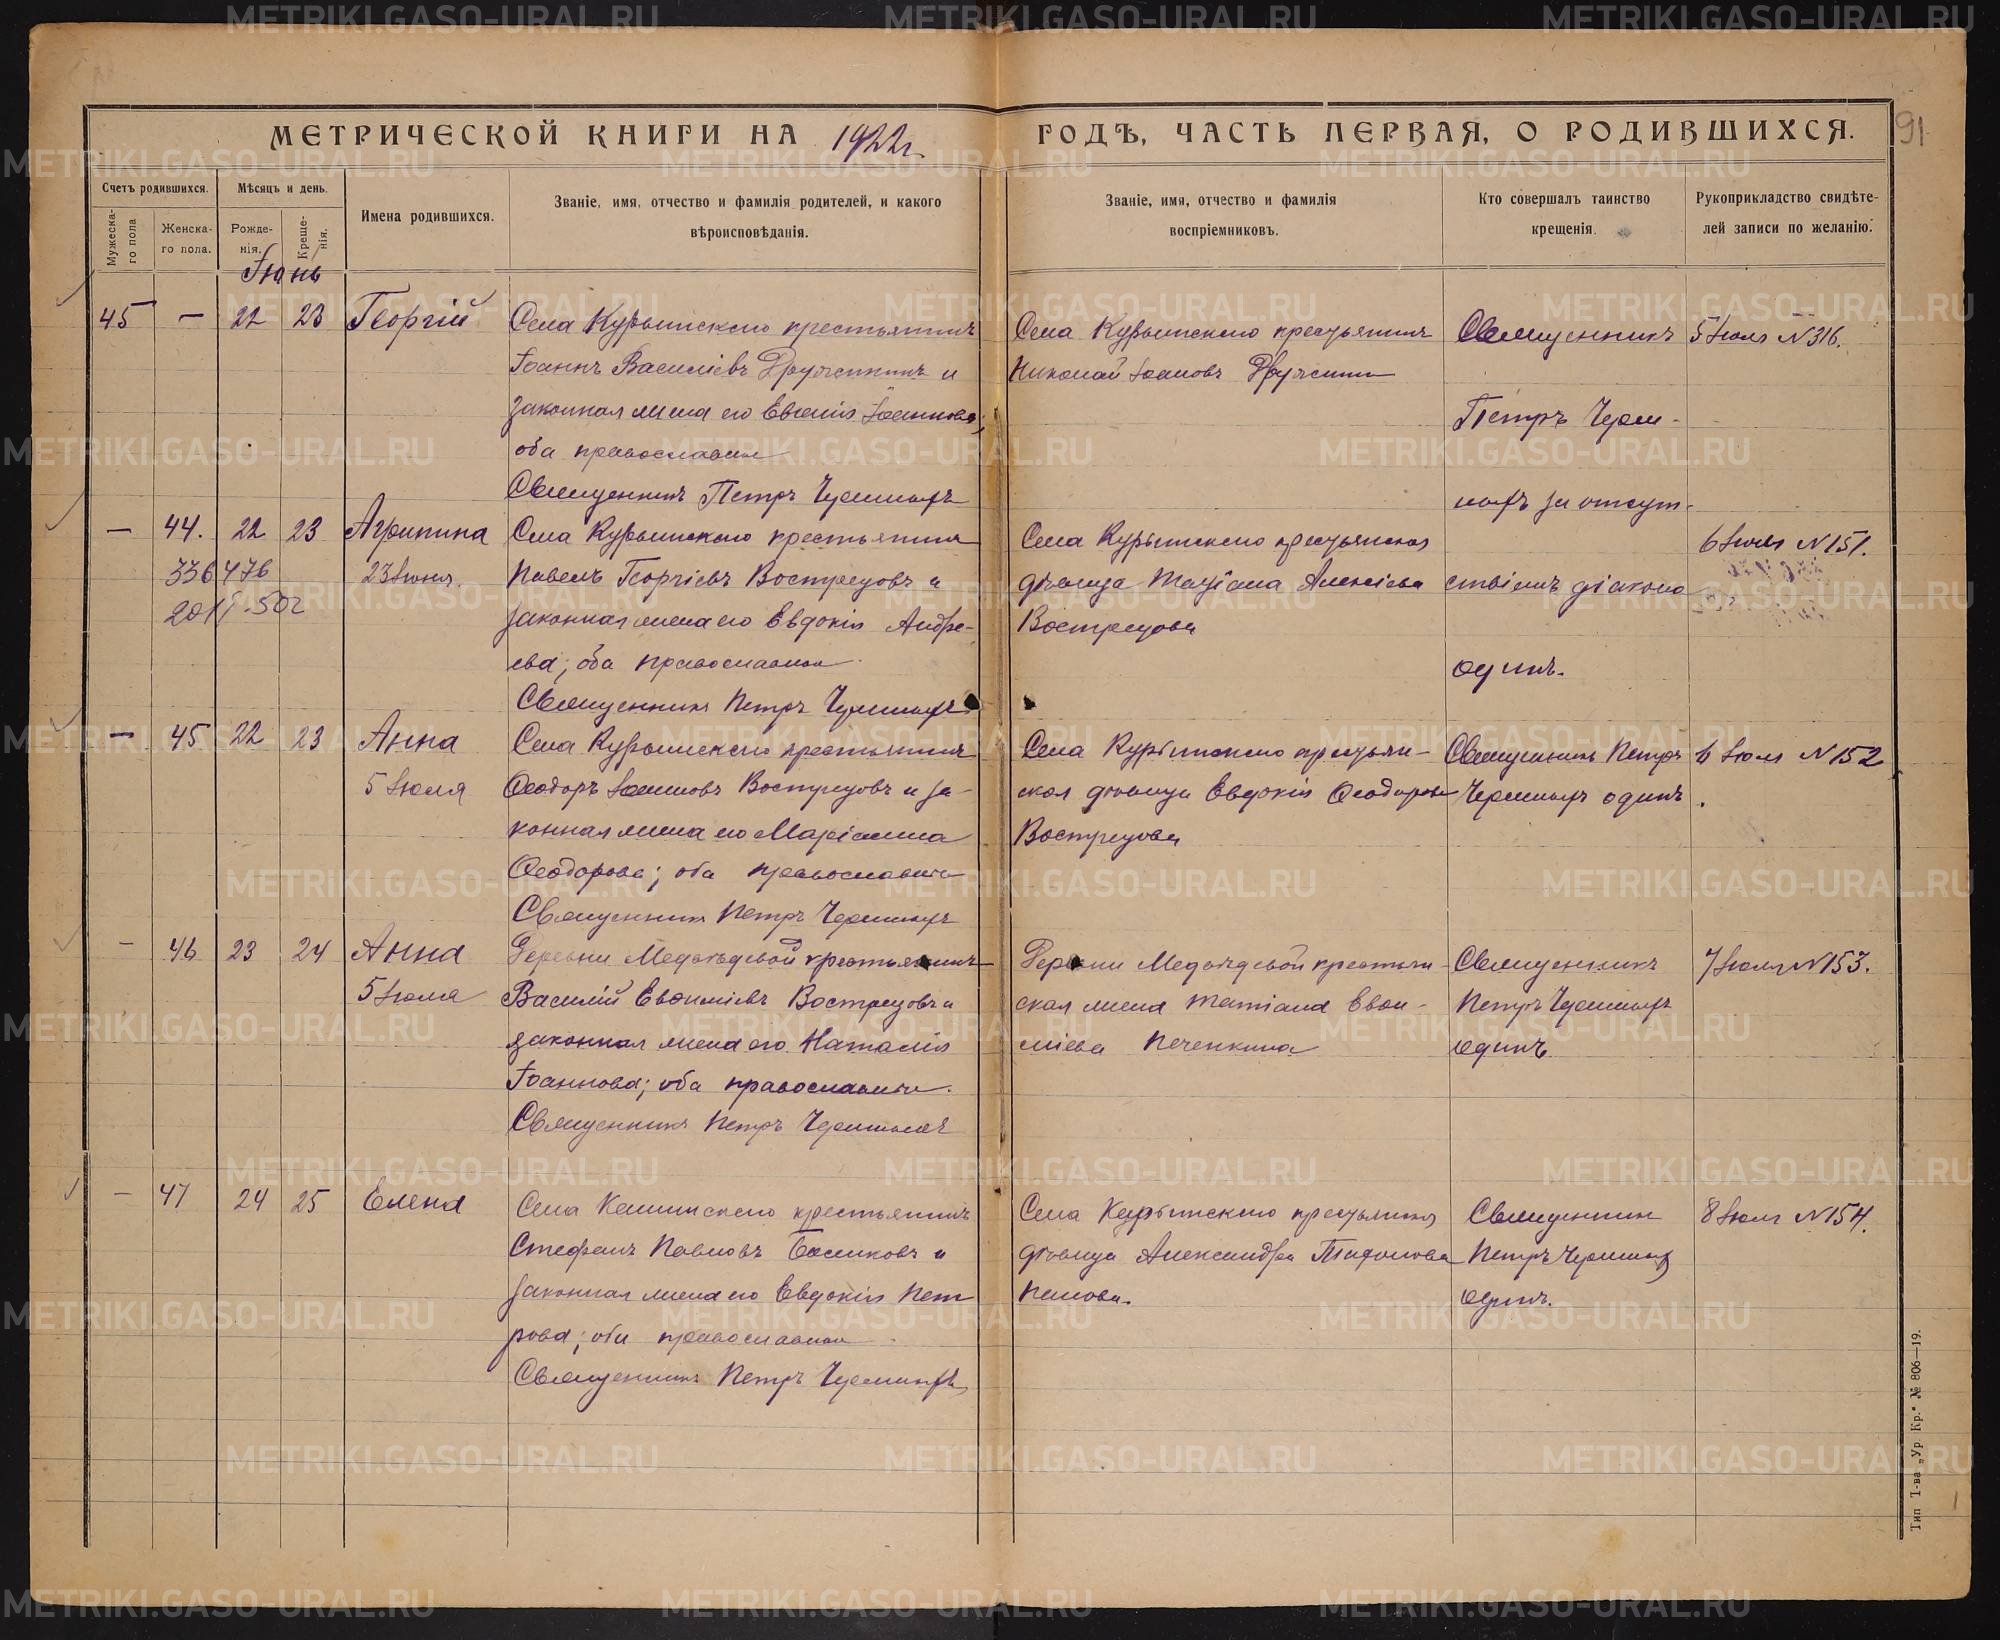 МЕТРИЧЕСКОЙ КНИГИ НА 1922г. ГОДЪ, ЧАСТЬ ПЕРВАЯ, О РОДИВШИХСЯ.
91
Счетъ родившихся.
Мужеска-
го пола
Женска-
го пола.
Мѣсяцъ и день.
Рожде-
нія.
Креще-
нія.
Имена родившихся.
Званіе, имя, отчество и фамилія родителей, и какого
вѣроисповѣданія.
Званіе, имя, отчество и фамилія
воспріемниковъ.
Кто совершалъ таинство
крещенія.
Рукоприкладство свидѣте-
лей записи по желанію.
Іюнь
45 — 22 23 Георгій
Села Курьинского крестьянинъ
Іоаннъ Василіевъ Дружининъ и
законная жена его Евгенія Іоаннова;
оба православные
Священникъ Петръ Черемныхъ
Села Курьинского крестьянинъ
Николай Іоанновъ Дружинин
Священникъ
Петръ Черем-
ныхъ за отсут-
ствіемъ діакона
одинъ.
5 Іюля №316.
— 44. 22 23 Агрипина
23 Іюня.
336476
2011.502
Села Курьинского крестьянинъ
Павелъ Георгіевъ Вострецовъ и
законная жена его Евдокія Андре-
ева; оба православные
Священникъ Петръ Черемныхъ
Села Курьинского крестьянская
дѣвица Татіана Алексіева
Вострецова
6 Іюля №151.
— 45 22 23 Анна
5 Іюля
Села Курьинского крестьянинъ
Ѳеодоръ Іоанновъ Вострецовъ и за-
конная жена его Маріамна
Ѳеодорова; оба православные
Священникъ Петръ Черемныхъ
Села Курьинского крестьян-
ская дѣвица Евдокія Ѳеодорова
Вострецова
Священникъ Петръ
Черемныхъ одинъ.
6 Іюля №152
— 46 23 24 Анна
5 Іюля
Деревни Медвѣдевой крестьянинъ
Василій Евѳиміевъ Вострецовъ и
законная жена его Наталія
Іоаннова; оба православные.
Священникъ Петръ Черемныхъ
Деревни Медвѣдевой крестьян-
ская жена Татіана Евѳи-
міева Печенкина
Священникъ
Петръ Черемныхъ
одинъ
7 Іюля №153.
— 47 24 25 Елена
Села Кашинского крестьянинъ
Стефанъ Павловъ и
законная жена его Евдокія Пет
рова; оба православные.
Священникъ Петръ Черемныхъ
Села Курьинского крестьянская
дѣвица Александра
Священник
Петръ Черемныхъ
одинъ.
8 Іюля №154.
Тип Т-ва „Ур. Кр.“ № 806—19.
METRIKI.GASO-URAL.RU